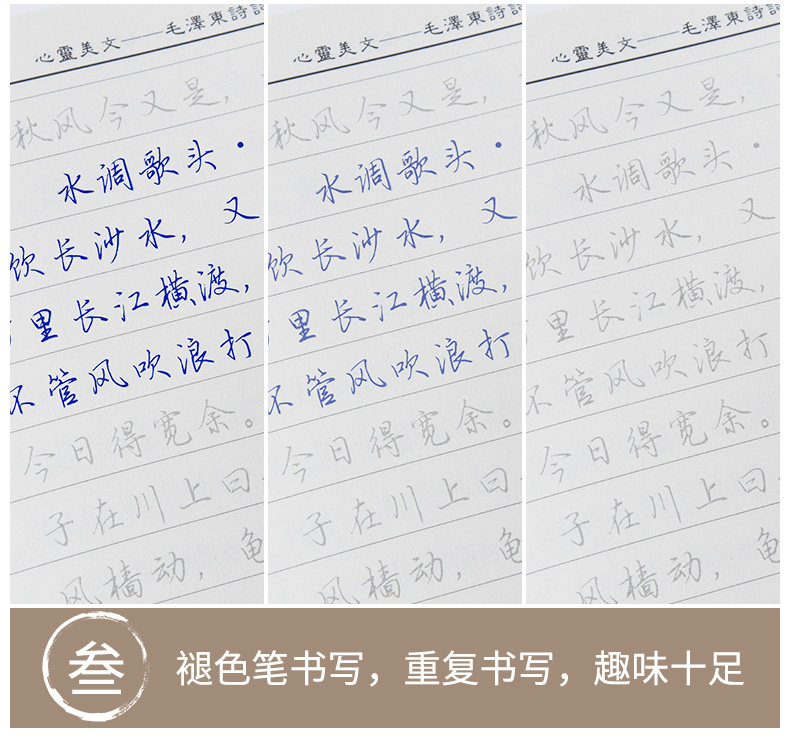 心靈美文——毛澤東詩
秋风今又是，
水调歌头·
饮长沙水，又
里长江横渡，
不管风吹浪打
今日得宽余。
子在川上曰
风樯动，龟
心靈美文——毛澤東詩
秋风今又是，
水调歌头·
饮长沙水，又
里长江横渡，
不管风吹浪打
今日得宽余。
子在川上曰
风樯动，龟
心靈美文——毛澤東詩
秋风今又是，
水调歌头·
饮长沙水，又
里长江横渡，
不管风吹浪打
今日得宽余。
子在川上曰
风樯动，龟
叁
褪色笔书写，重复书写，趣味十足